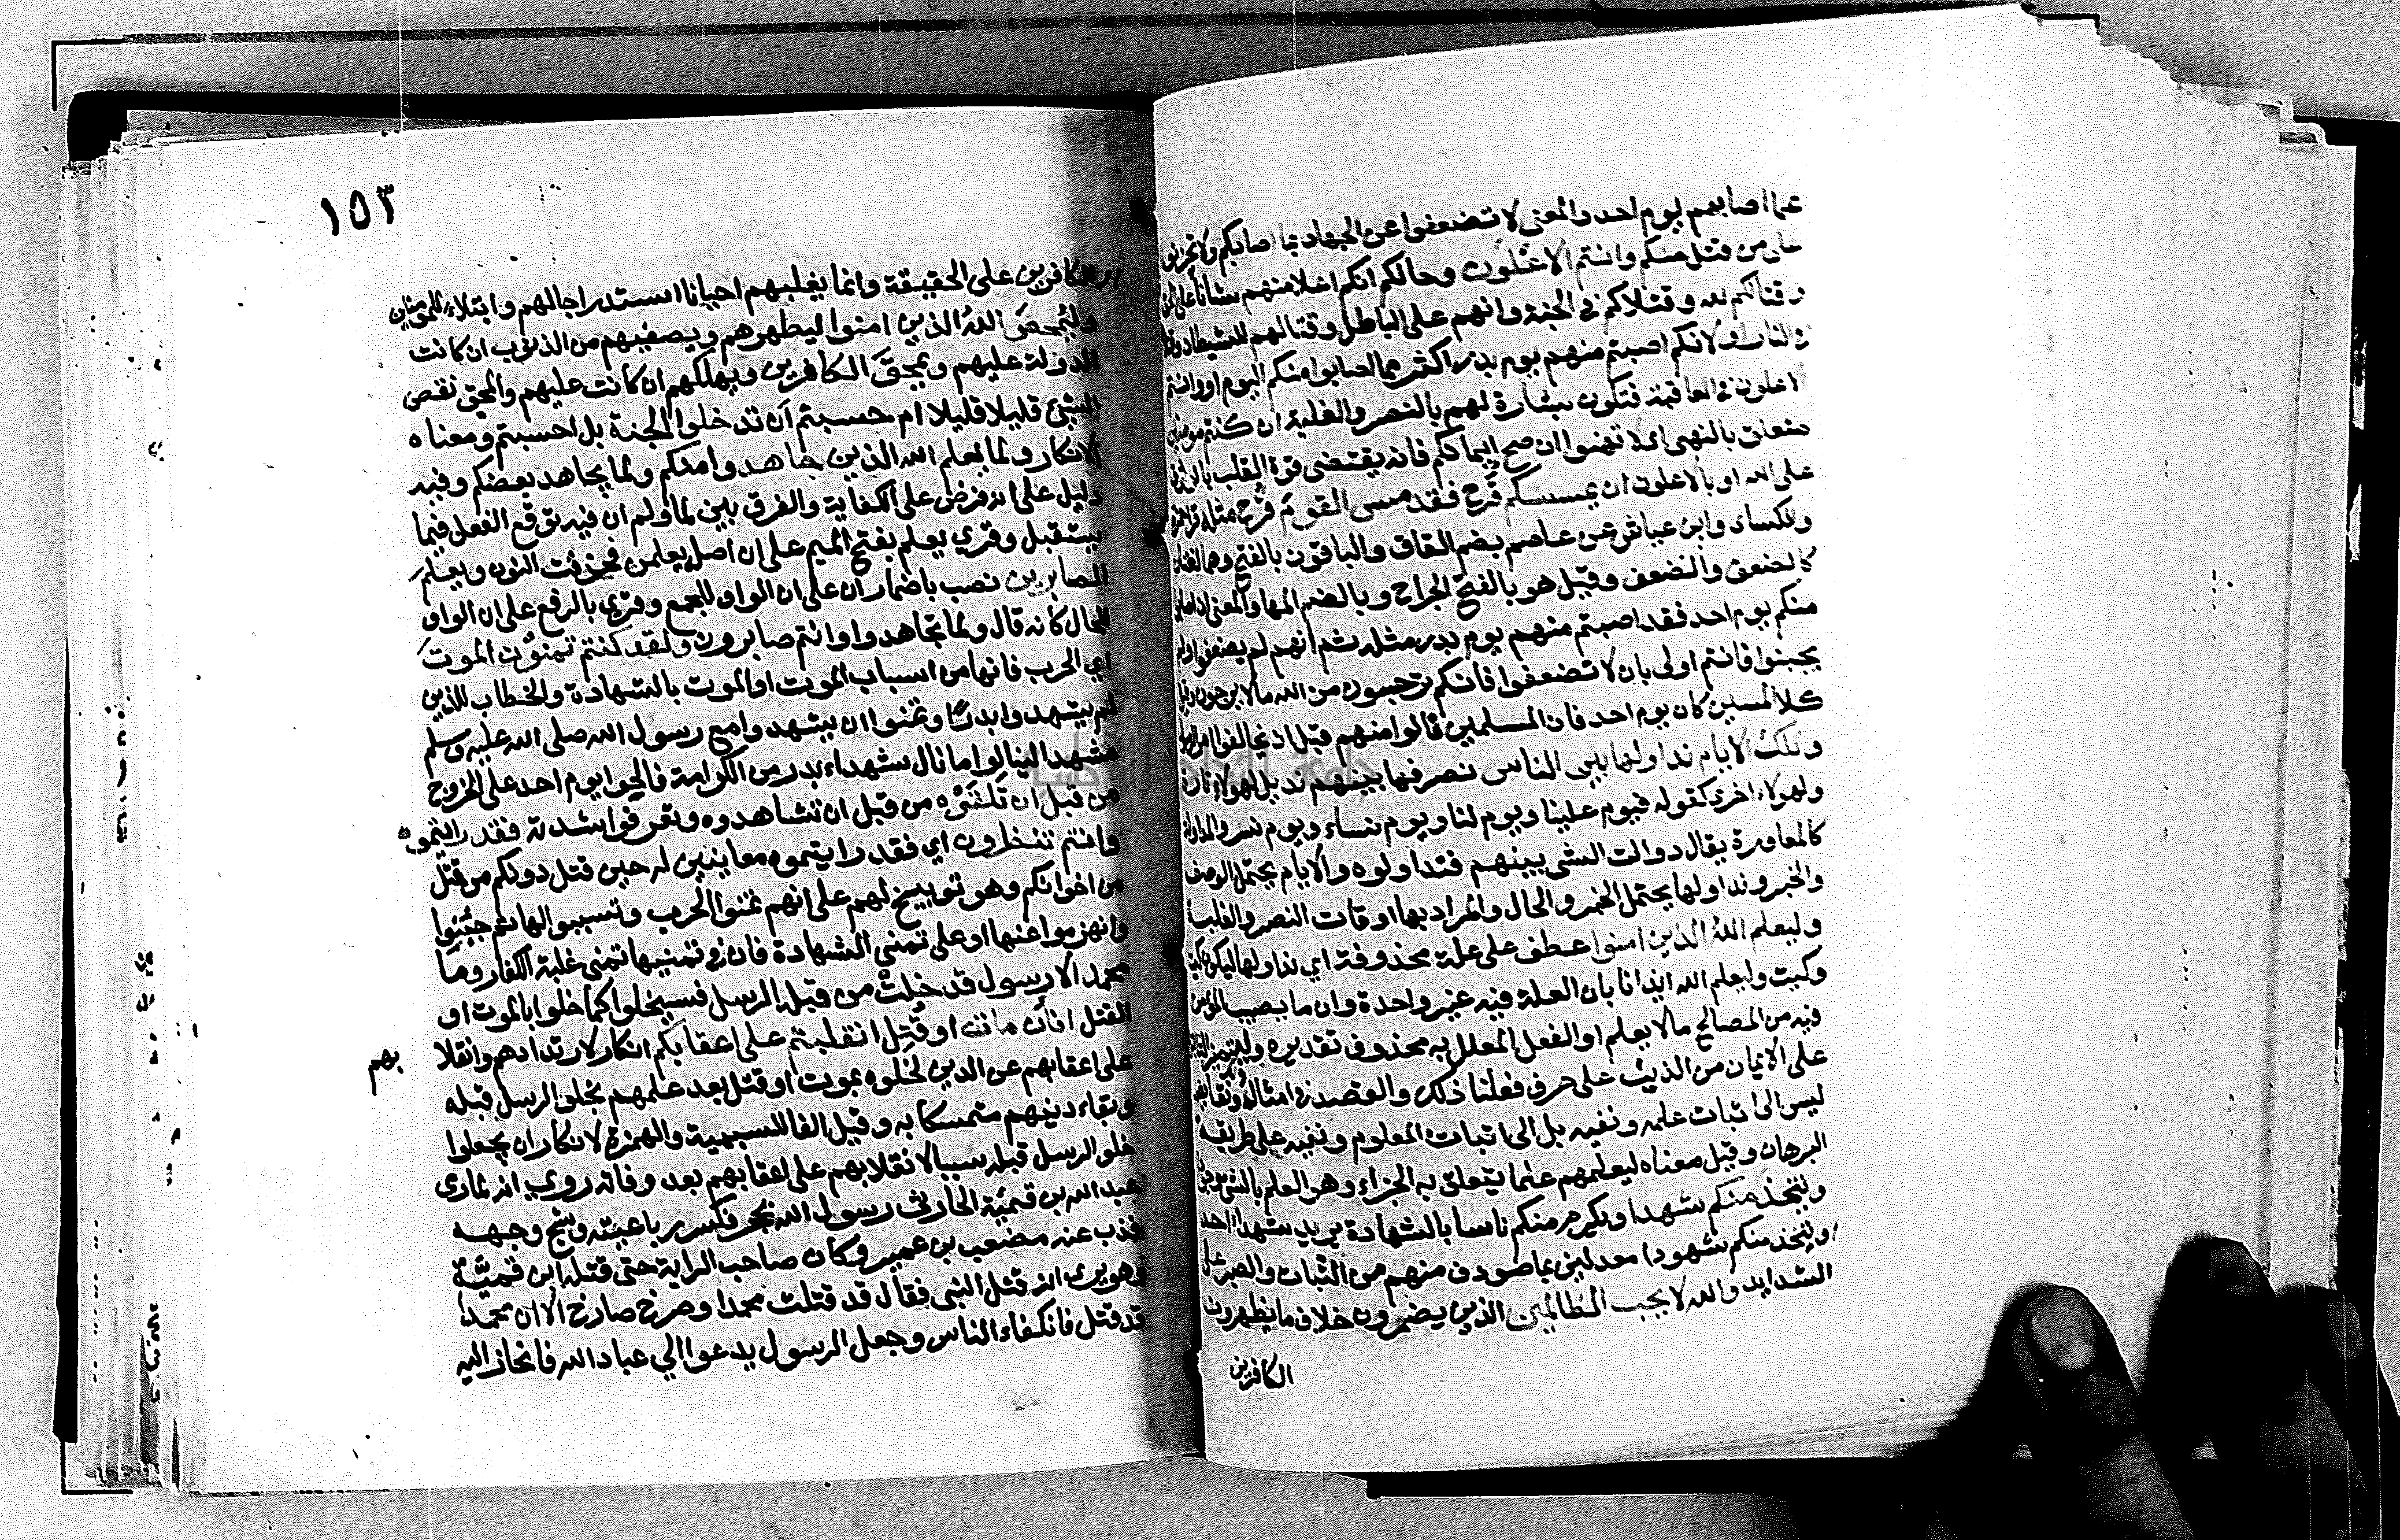 عما اصابهم يوم احد والمعنى لا تضعفوا عن الجهاد بما اصابكم ولا تحزنوا
على من قتل منكم وانتم الاعلون وحالكم انكم اعلا منهم شانا
وقتالكم لله وقتلاكم في الجنة وانهم على الباطل وقتالهم للشيطان
في النار او لانكم اصبتم منهم يوم بدر اكثر مما اصابوا منكم اليوم او وانتم
الاعلون في العاقبة فتكون بشارة لهم بالنصر والغلبة ان كنتم مؤمنين
متعلق بالنهي اي لا تهنوا ان صح ايمانكم فانه يقتضي قوة القلب
على الله او بالاعلون ان يمسسكم قرح فقد مس القوم قرح مثله
والكساى وابن عباش عن عاصم بضم القاف والباقون بالفتح وهما لغتان
كالضعف والضعف وقيل هو بالفتح الجراح وبالضم المها والمعنى ان اصابوا
منكم يوم احد فقد اصبتم منهم يوم بدر مثله ثم انهم لم يضعفوا ولم
يجبنوا فانتم اولى بان لا تضعفوا فانكم ترجون من الله مالا يرجون وقيل
كلا المسين كان يوم احد فان المسلمين قالوا منهم قبل ان يخالفوا امر الرسول
وتلك الايام نداولها بين الناس نصرفها بينهم نديل لهولاء تارة
ولهولاء اخرى كقوله فيوم علينا ويوم لنا ويوم نساء ويوم نسر والمداولة
كالمعاورة يقال داولت الشى بينهم فتداولوه والايام يحتمل الوصف
والخبر ونداولها يحتمل الخبر والحال والمراد بها اوقات النصر والغلبة
وليعلم الله الذين امنوا عطف على علة محذوفة اي نداولها ليكون كيت
وكيت وليعلم الله ايذانا بان العلة فيه غير واحدة وان ما يصيب المؤمن
فيه من المصالح مالا يعلم او الفعل المعلل به محذوف تقديره وليتميز الثابتون
على الايمان من الذين على حرف فعلنا ذلك والقصد في امثاله ونقايضه
ليس الى اثبات علمه ونفيه بل الى اثبات المعلوم ونفيه على طريقة
البرهان وقيل معناه ليعلمهم علما يتعلق به الجزاء وهو العلم بالشى موجودا
ويتخذ منكم شهدا ويكرم منكم ناسا بالشهادة يريد شهداء احد
او يتخذ منكم شهودا معدلين بما صودف منهم من الثبات والصبر على
الشدايد والله لا يحب الظالمين الذين يضمرون خلاف ما يظهرون
الكافرين
١٥٣
الكافرين على الحقيقة وانما يغلبهم احيانا استدراجا لهم وابتلاء للمؤمنين
وليمحص الله الذين امنوا ليطهرهم ويصفيهم من الذنوب ان كانت
الدولة عليهم ويمحق الكافرين ويهلكهم ان كانت عليهم والمحق نقص
الشئ قليلا قليلا ام حسبتم ان تدخلوا الجنة بل احسبتم ومعناه
الانكار ولما يعلم الله الذين جاهدوا منكم ولما يجاهد بعضكم وفيه
دليل على انه فرض على الكفاية والفرق بين لما ولم ان فيه توقع الفعل فيما
يستقبل وقري يعلم بفتح الميم على ان اصله يعلمن فحذفت النون ويعلم
الصابرين نصب باضمار ان على ان الواو للجمع وقري بالرفع على ان الواو
للحال كانه قال ولما تجاهدوا وانتم صابرون ولقد كنتم تمنون الموت
اي الحرب فانها من اسباب الموت او الموت بالشهادة والخطاب للذين
لم يشهدوا بدرا وتمنوا ان يشهدوا مع رسول الله صلى الله عليه وسلم
مشهدا لينالوا ما نال شهداء بدر من الكرامة فالحوا يوم احد على الخروج
من قبل ان تلقوه من قبل ان تشاهدوه وتعرفوا شدته فقد رايتموه
وانتم تنظرون اي فقد رايتموه معاينين له حين قتل دونكم من قتل
من اخوانكم وهو توبيخ لهم على انهم تمنوا الحرب وتسببوا لها ثم جبنوا
وانهزموا عنها او على تمني الشهادة فان في تمنيها تمنى غلبة الكفار وما
محمد الا رسول قد خلت من قبله الرسل فسيخلوا كما خلوا بالموت او
القتل افأن مات او قتل انقلبتم على اعقابكم انكار لارتدادهم وانقلا
بهم
على اعقابهم عن الدين لخلوه بموت او قتل بعد علمهم بخلو الرسل قبله
وبقاء دينهم متمسكا به وقيل الفا للسببية والهمزة لانكار ان يجعلوا
خلو الرسل قبله سببا لانقلابهم على اعقابهم بعد وفاته روي انه لما رى
عبد الله بن قمئة الحارثى رسول الله بحجر فكسر رباعيته وشج وجهه
فذب عنه مصعب بن عمير وكان صاحب الراية حتى قتله ابن قميئة
وهو يرى انه قتل النبي فقال قد قتلت محمدا وصرخ صارخ الا ان محمدا
قد قتل فانكفاء الناس وجعل الرسول يدعوا الي عباد الله فانحاز اليه